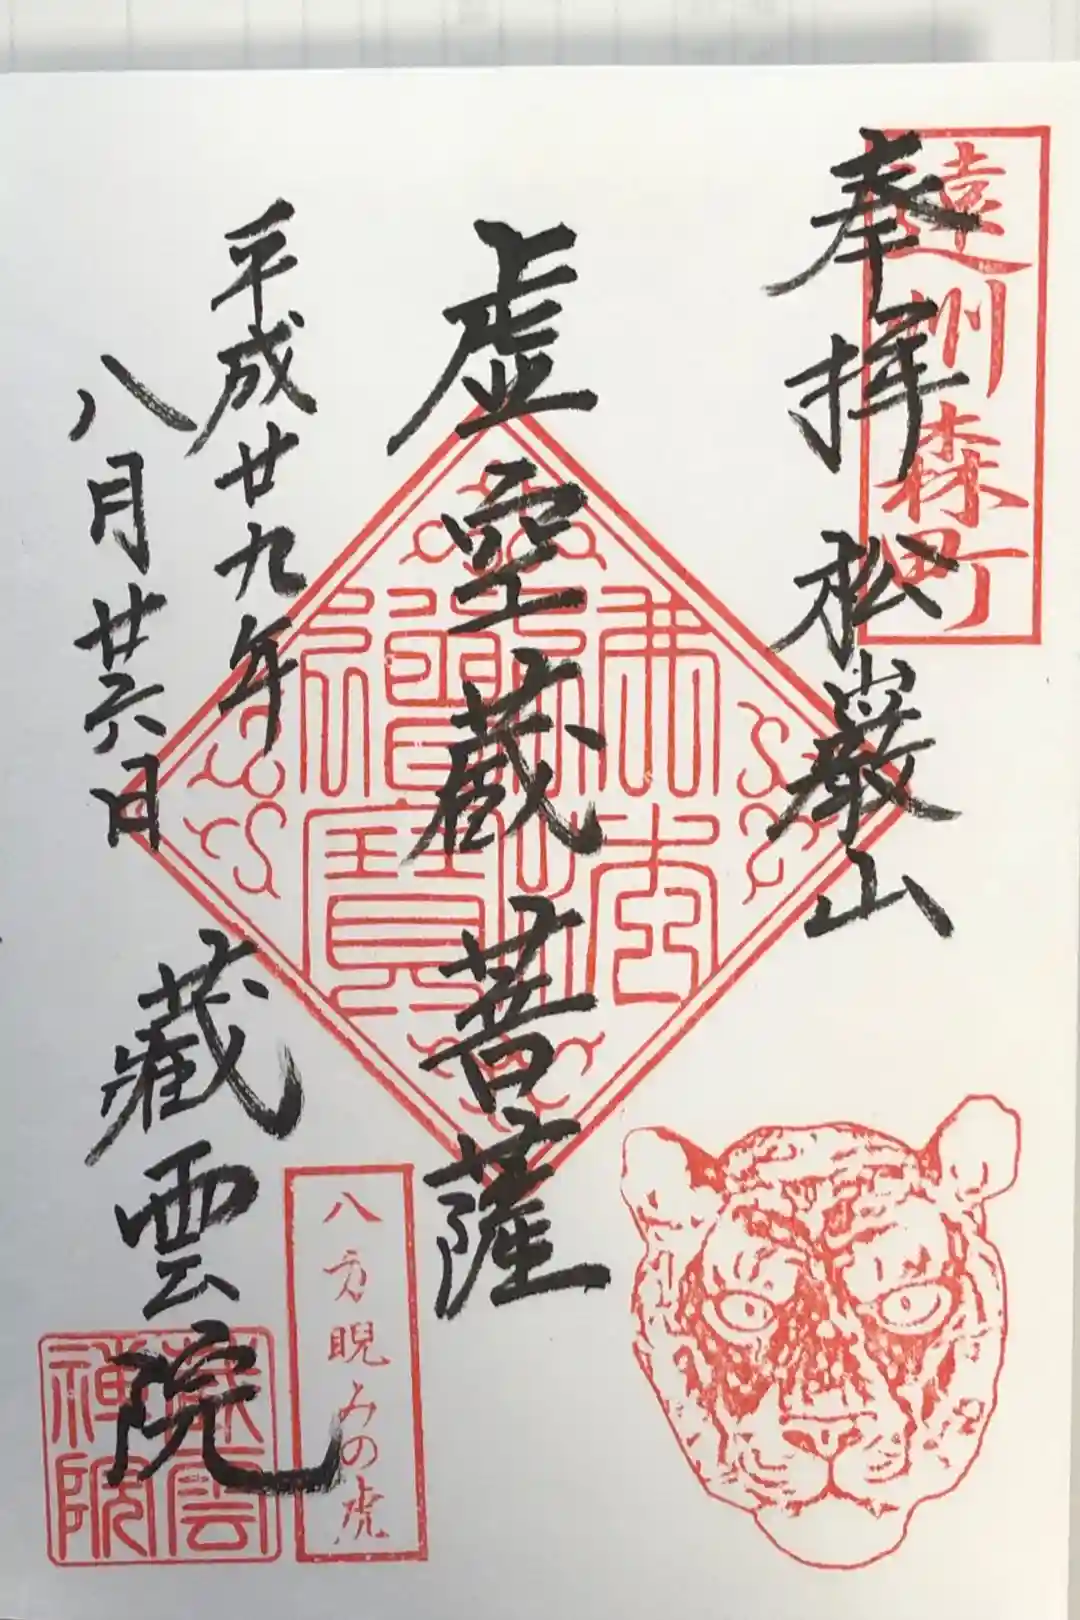 遠州森町
奉拝 松巖山
虚空蔵菩薩
平成廿九年
八月廿六日
藏雲院
八方睨みの虎
佛法僧寶
藏雲禅院